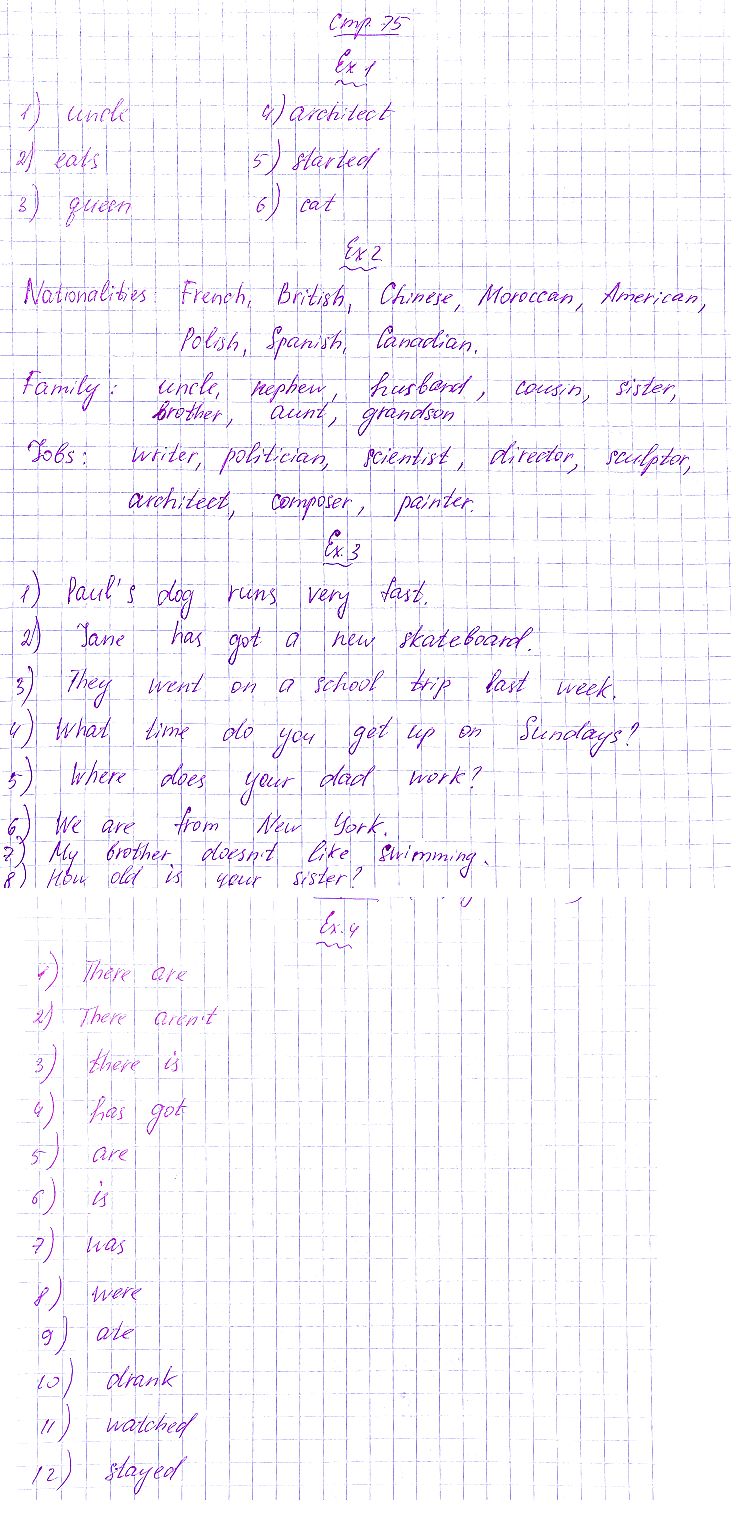 Стр. 75
Ex 1
1) uncle 4) architect
2) eats 5) started
3) queen 6) cat
Ex 2
Nationalities: French, British, Chinese, Moroccan, American,
Polish, Spanish, Canadian.
Family: uncle, nephew, husband, cousin, sister,
brother, aunt, grandson
Jobs: writer, politician, scientist, director, sculptor,
architect, composer, painter.
Ex. 3
1) Paul's dog runs very fast.
2) Jane has got a new skateboard.
3) They went on a school trip last week.
4) What time do you get up on Sundays?
5) Where does your dad work?
6) We are from New York.
7) My brother doesn't like swimming.
8) How old is your sister?
Ex. 4
1) There are
2) There aren't
3) there is
4) has got
5) are
6) is
7) was
8) were
9) ate
10) drank
11) watched
12) stayed